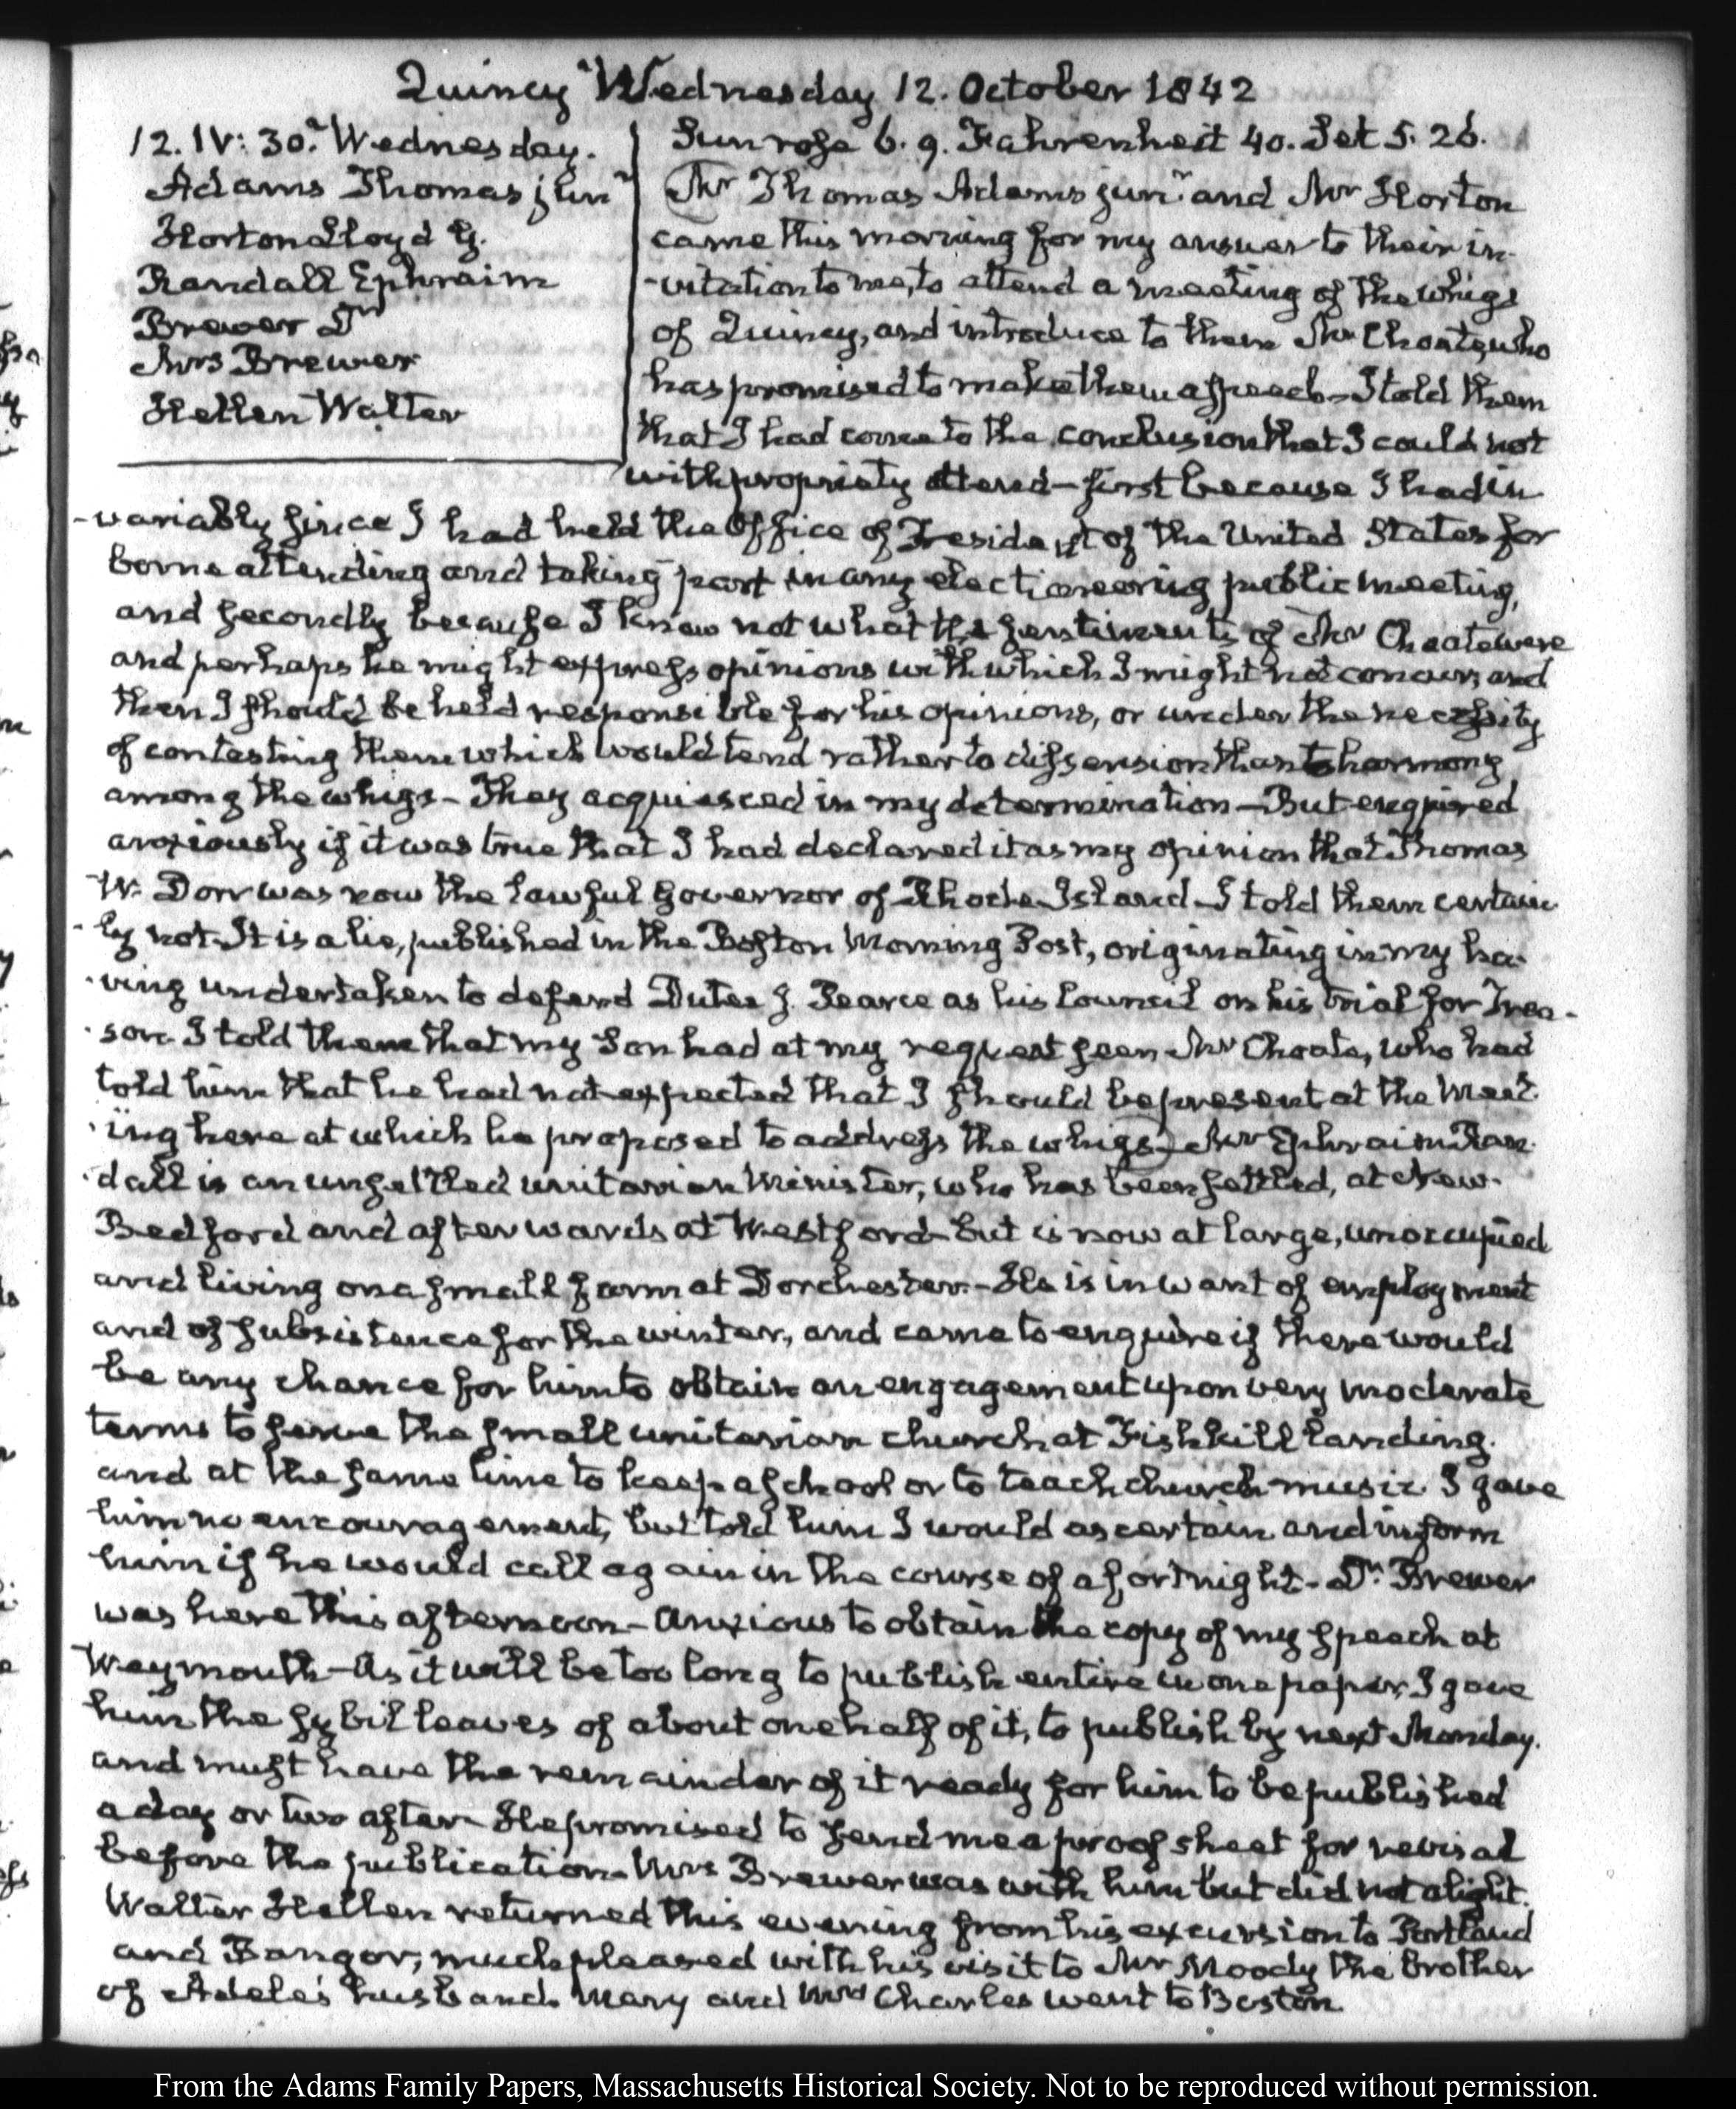 Quincy Wednesday 12. October 1842
12. IV: 30. Wednesday.
Adams Thomas junr
Horton Lloyd G.
Randall Ephraim
Brewer Dr
Mrs Brewer
Hellen Walter
Sun rose 6. 9. Fahrenheit 40. Set 5. 26.
Mr Thomas Adams junr and Mr Horton
came this morning for my answer to their in-
-vitation to me, to attend a meeting of the Whigs
of Quincy, and introduce to them Mr Choate, who
has promised to make them a speech - I told them
that I had come to the conclusion that I could not
with propriety attend - first because I had in
-variably since I had held the Office of President of the United States for
borne attending and taking part in any electioneering public meeting,
and secondly because I knew not what the sentiments of Mr Choate were
and perhaps he might express opinions with which I might not concur, and
then I should be held responsible for his opinions, or under the necessity
of contesting them which would tend rather to dissension than to harmony
among the whigs - They acquiesced in my determination - But enquired
anxiously if it was true that I had declared it as my opinion that Thomas
W. Dorr was now the lawful Governor of Rhode Island - I told them certain
-ly not. It is a lie, published in the Boston Morning Post, originating in my ha-
-ving undertaken to defend Dutee J. Pearce as his Council on his trial for Trea-
-son. I told them that my Son had at my request seen Mr Choate, who had
told him that he had not expected that I should be present at the Meet-
-ing here at which he proposed to address the whigs - Mr Ephraim Ran-
-dall is an unsettled unitarian Minister, who has been settled, at New-
Bedford and afterwards at Westford - but is now at large, unoccupied
and living on a small farm at Dorchester. - He is in want of employment
and of subsistence for the winter, and came to enquire if there would
be any chance for him to obtain an engagement upon very moderate
terms to serve the small unitarian church at Fishkill landing.
and at the same time to keep a school or to teach church music. I gave
him no encouragement, but told him I would ascertain and inform
him if he would call again in the course of a fortnight - Dr. Brewer
was here this afternoon - anxious to obtain the copy of my speech at
Weymouth - As it will be too long to publish entire in one paper, I gave
him the sybil leaves of about one half of it, to publish by next Monday.
and must have the remainder of it ready for him to be published
a day or two after - He promised to send me a proof sheet for revisal
before the publication - Mrs Brewer was with him but did not alight.
Walter Hellen returned this evening from his excursion to Portland
and Bangor, much pleased with his visit to Mr Moody the brother
of Adele's husband. Mary and Mrs Charles went to Boston.
From the Adams Family Papers, Massachusetts Historical Society. Not to be reproduced without permission.